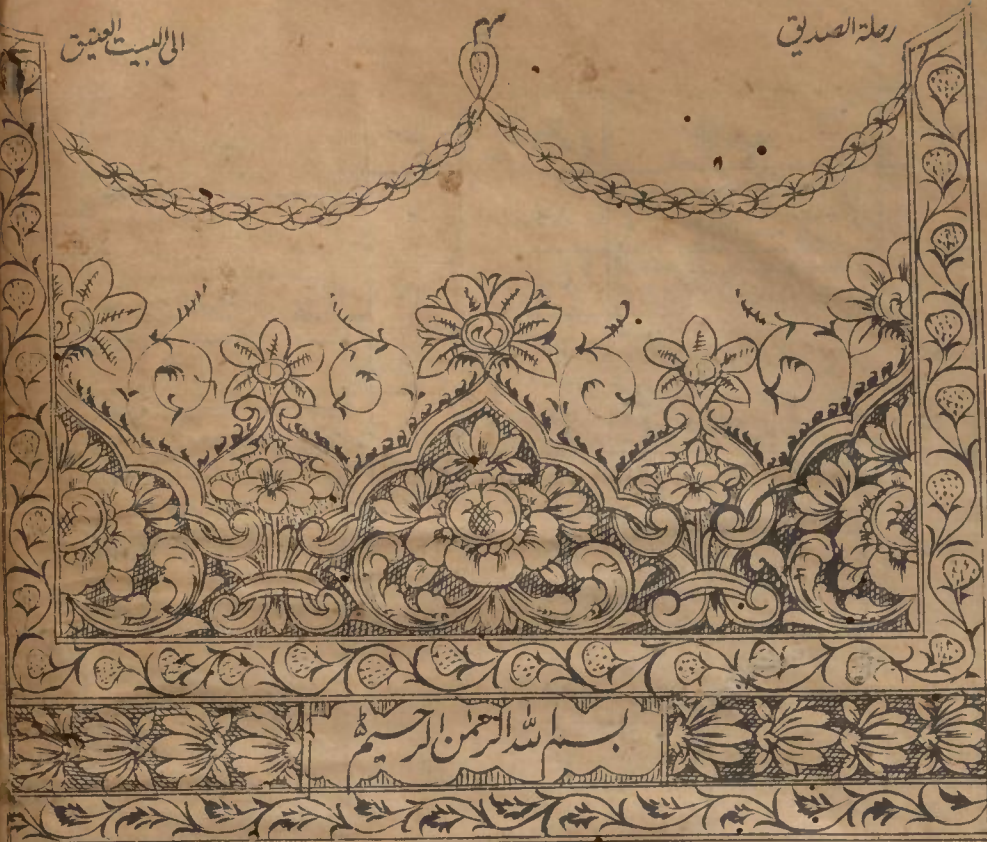 رحلة الصديق
الى البيت العتيق
بسم الله الرحمن الرحيم